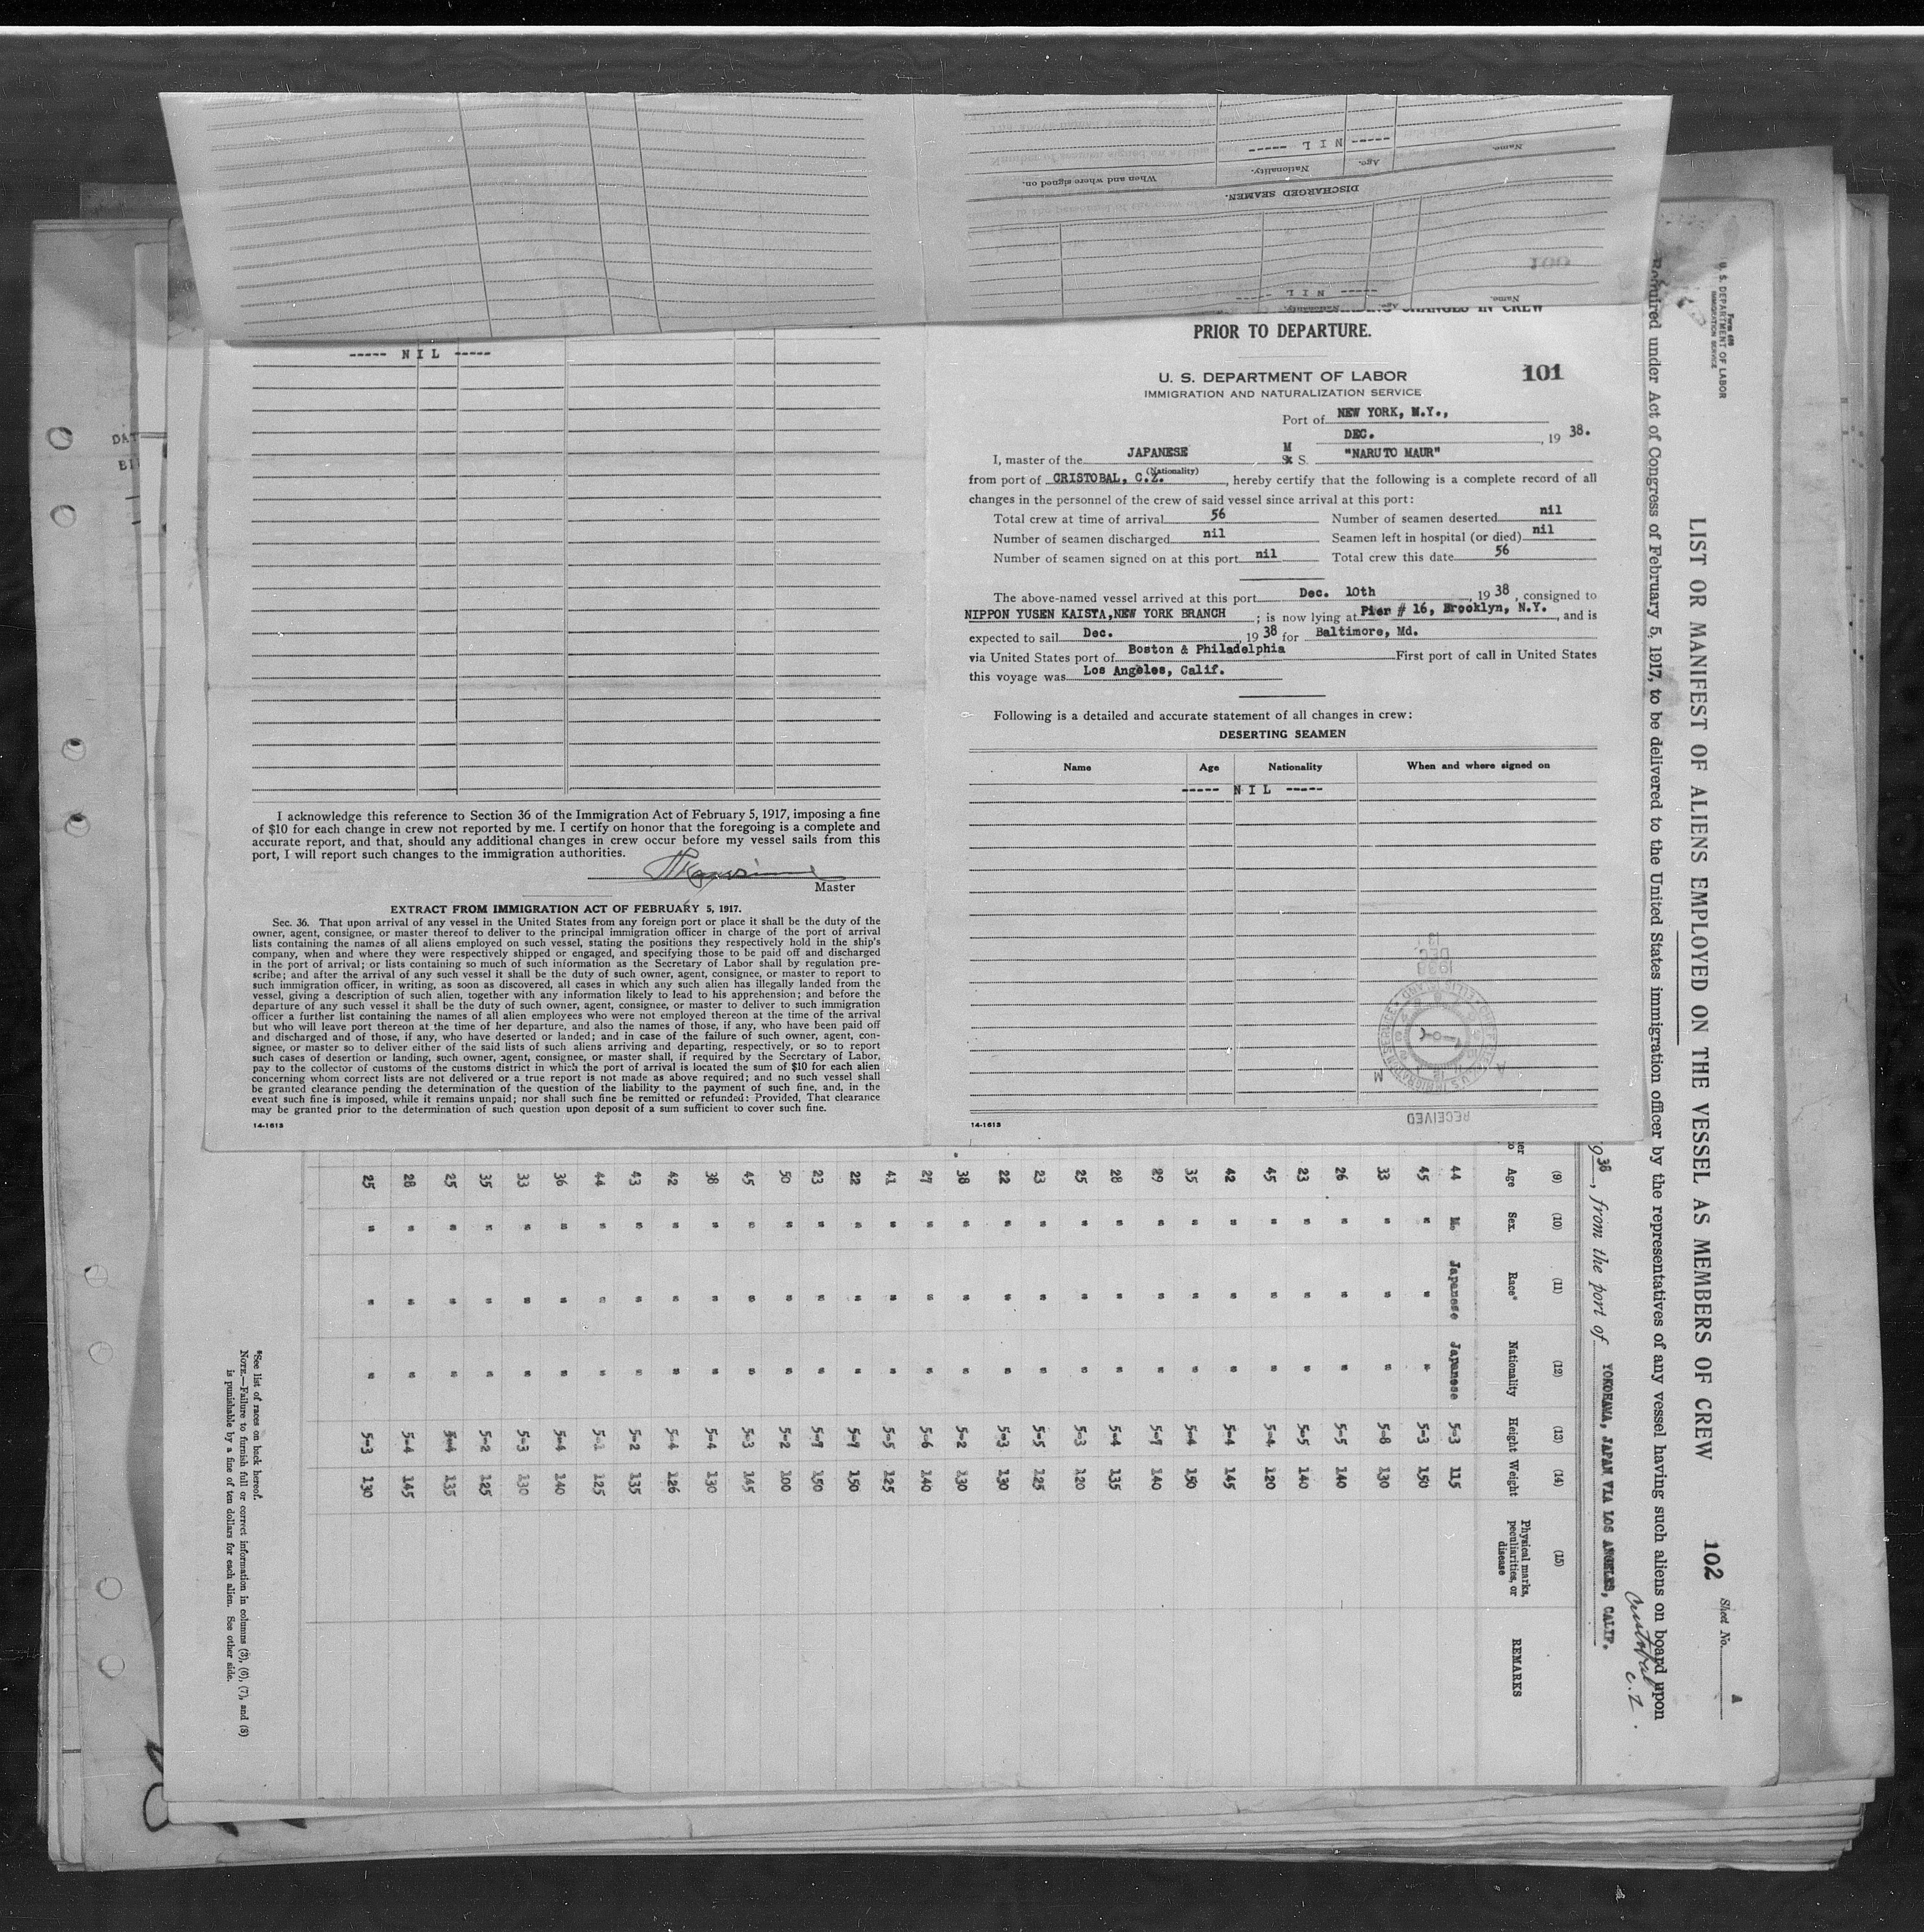 Name.
Age.
Nationality.
When and where signed on.
----- NIL -----
DISCHARGED SEAMEN.
100
Name.
Age
Nationality.
----- NIL -----
----- NIL -----
I acknowledge this reference to Section 36 of the Immigration Act of February 5, 1917, imposing a fine
of $10 for each change in crew not reported by me. I certify on honor that the foregoing is a complete and
accurate report, and that, should any additional changes in crew occur before my vessel sails from this
port, I will report such changes to the immigration authorities.
Master
EXTRACT FROM IMMIGRATION ACT OF FEBRUARY 5, 1917.
Sec. 36. That upon arrival of any vessel in the United States from any foreign port or place it shall be the duty of the
owner, agent, consignee, or master thereof to deliver to the principal immigration officer in charge of the port of arrival
lists containing the names of all aliens employed on such vessel, stating the positions they respectively hold in the ship's
company, when and where they were respectively shipped or engaged, and specifying those to be paid off and discharged
in the port of arrival; or lists containing so much of such information as the Secretary of Labor shall by regulation pre-
scribe; and after the arrival of any such vessel it shall be the duty of such owner, agent, consignee, or master to report to
such immigration officer, in writing, as soon as discovered, all cases in which any such alien has illegally landed from the
vessel, giving a description of such alien, together with any information likely to lead to his apprehension; and before the
departure of any such vessel it shall be the duty of such owner, agent, consignee, or master to deliver to such immigration
officer a further list containing the names of all alien employees who were not employed thereon at the time of the arrival
but who will leave port thereon at the time of her departure, and also the names of those, if any, who have been paid off
and discharged and of those, if any, who have deserted or landed; and in case of the failure of such owner, agent, con-
signee, or master so to deliver either of the said lists of such aliens arriving and departing, respectively, or so to report
such cases of desertion or landing, such owner, agent, consignee, or master shall, if required by the Secretary of Labor,
pay to the collector of customs of the customs district in which the port of arrival is located the sum of $10 for each alien
concerning whom correct lists are not delivered or a true report is not made as above required; and no such vessel shall
be granted clearance pending the detemination of the question of the liability to the payment of such fine, and, in the
event such fine is imposed, while it remains unpaid; nor shall such fine be remitted or refunded: Provided, That clearance
may be granted prior to the determination of such question upon deposit of a sum sufficient to cover such fine.
14-1613
CHANGES IN CREW
PRIOR TO DEPARTURE.
U. S. DEPARTMENT OF LABOR
IMMIGRATION AND NATURALIZATION SERVICE
101
Port of NEW YORK, N.Y.,
DEC. , 19 38.
I, master of the JAPANESE M S. "NARUTO MAUR"
(Nationality)
from port of CRISTOBAL, C.Z. , hereby certify that the following is a complete record of all
changes in the personnel of the crew of said vessel since arrival at this port:
Total crew at time of arrival 56 Number of seamen deserted nil
Number of seamen discharged nil Seamen left in hospital (or died) nil
Number of seamen signed on at this port nil Total crew this date 56
The above-named vessel arrived at this port Dec. 10th , 19 38 , consigned to
NIPPON YUSEN KAISTA,NEW YORK BRANCH ; is now lying at Pier # 16, Brooklyn, N.Y. , and is
expected to sail Dec. , 19 38 for Baltimore, Md.
via United States port of Boston & Philadelphia First port of call in United States
this voyage was Los Angeles, Calif.
Following is a detailed and accurate statement of all changes in crew:
DESERTING SEAMEN
Name Age Nationality When and where signed on
----- NIL -----
1938
DEC
13
RECEIVED
14-1613
Form 689
U. S. DEPARTMENT OF LABOR
IMMIGRATION SERVICE
LIST OR MANIFEST OF ALIENS EMPLOYED ON THE VESSEL AS MEMBERS OF CREW
102
Sheet No. A
Required under Act of Congress of February 5, 1917, to be delivered to the United States immigration officer by the representatives of any vessel having such aliens on board upon
Cristobal C.Z.
19 38, from the port of YOKOHAMA, JAPAN VIA LOS ANGELES, CALIF.
(9) (10) (11) (12) (13) (14) (15)
Age Sex. Race* Nationality Height Weight Physical marks, peculiarities, or disease REMARKS
44 M. Japanese Japanese 5-3 115
45 " " " 5-3 150
33 " " " 5-8 130
26 " " " 5-5 140
23 " " " 5-5 140
45 " " " 5-4 120
42 " " " 5-4 145
35 " " " 5-4 150
29 " " " 5-7 140
28 " " " 5-4 135
25 " " " 5-3 120
23 " " " 5-5 125
22 " " " 5-3 130
38 " " " 5-2 130
27 " " " 5-6 140
41 " " " 5-5 125
22 " " " 5-7 150
23 " " " 5-7 150
50 " " " 5-2 100
45 " " " 5-3 145
38 " " " 5-4 130
42 " " " 5-4 126
43 " " " 5-2 135
44 " " " 5-1 125
36 " " " 5-4 140
33 " " " 5-3 130
35 " " " 5-2 125
25 " " " 5-4 135
28 " " " 5-4 145
25 " " " 5-3 130
*See list of races on back hereof.
NOTE.—Failure to furnish full or correct information in columns (3), (6), (7), and (8)
is punishable by a fine of ten dollars for each alien. See other side.